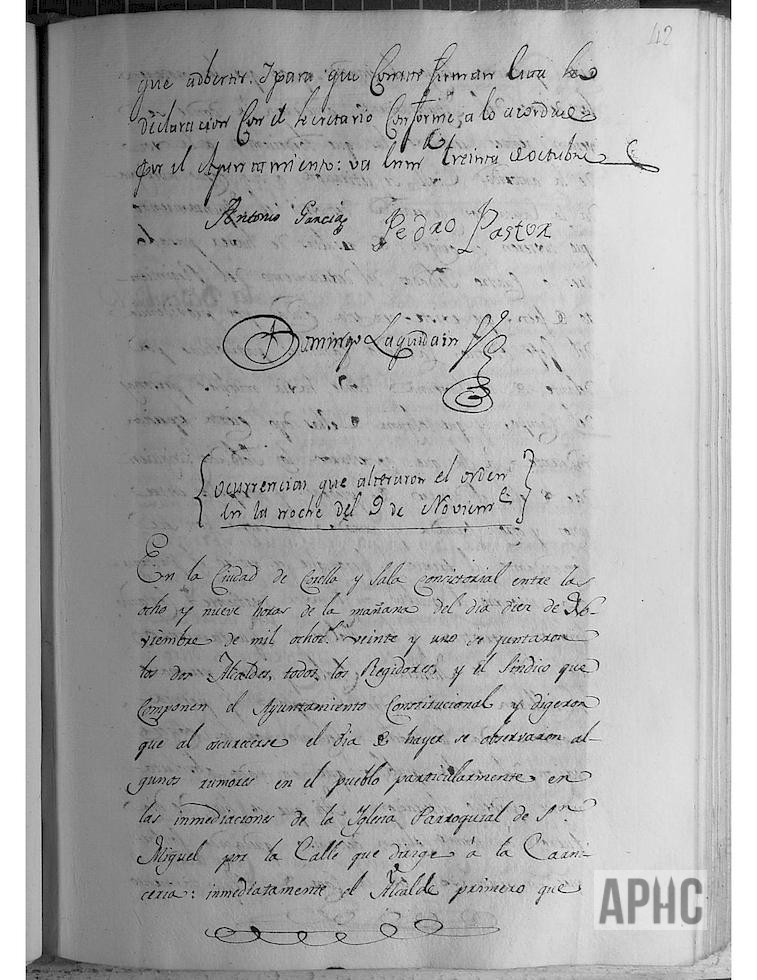 42
que adbertir. Y para que Conste firman esta
declaracion Con el Secretario Conforme a lo acordado
por el Ayuntamiento: treinta de octubre
Antonio Garcia Pedro Pastor
Domingo Laquidain
ocurrencias que alteraron el orden
en la noche del 9 de Noviem.e
En la Ciudad de Corella y Sala Consistorial entre las
ocho y nueve horas de la mañana del dia diez de No-
viembre de mil ochot.s veinte y uno se juntaron
los dos Alcaldes, todos los Regidores, y el Sindico que
componen el Ayuntamiento Constitucional y digeron
que al oscurecerse el dia de hayer se observaron al-
gunos rumores en el pueblo particularmente en
las inmediaciones de la Iglesia Parroquial de S.n
Miguel por la Calle que dirige á la Carni-
ceria: inmediatamente el Alcalde primero que
APHC